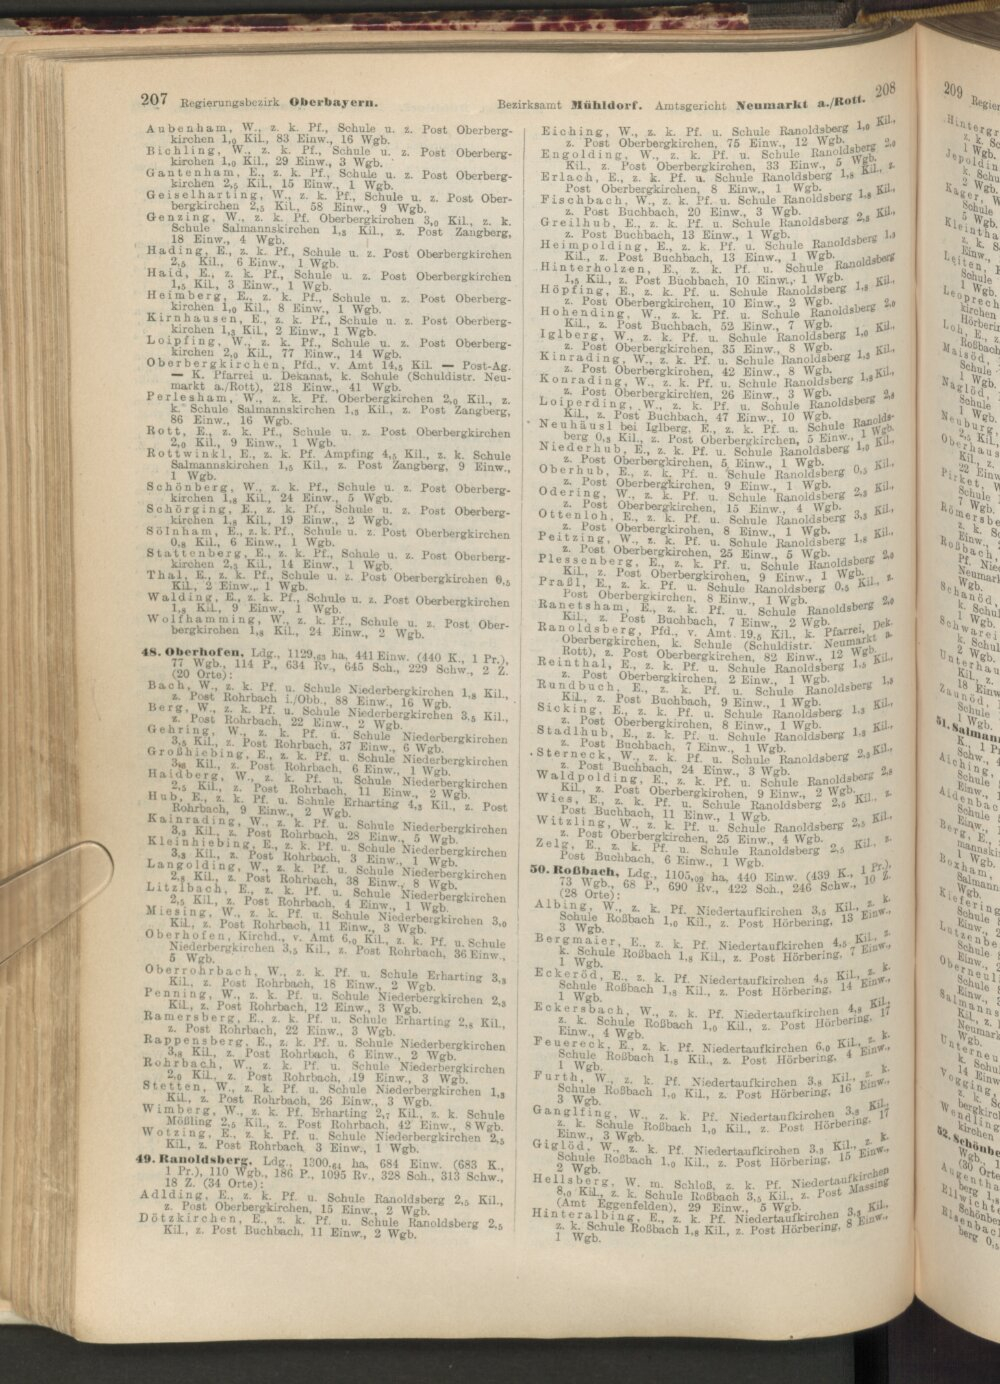 207 Regierungsbezirk Oberbayern.
Bezirksamt Mühldorf. Amtsgericht Neumarkt a./Rott. 208
Aubenham, W., z. k. Pf., Schule u. z. Post Oberberg-
kirchen 1,0 Kil., 83 Einw., 16 Wgb.
Bichling, W., z. k. Pf., Schule u. z. Post Oberberg-
kirchen 1,0 Kil., 29 Einw., 3 Wgb.
Gantenham, E., z. k. Pf., Schule u. z. Post Oberberg-
kirchen 2,5 Kil., 15 Einw., 1 Wgb.
Geiselharting, W., z. k. Pf., Schule u. z. Post Ober-
bergkirchen 2,5 Kil., 58 Einw., 9 Wgb.
Genzing, W., z. k. Pf. Oberbergkirchen 3,0 Kil., z. k.
Schule Salmannskirchen 1,8 Kil., z. Post Zangberg,
18 Einw., 4 Wgb.
Hading, E., z. k. Pf., Schule u. z. Post Oberbergkirchen
2,5 Kil., 6 Einw., 1 Wgb.
Haid, E., z. k. Pf., Schule u. z. Post Oberbergkirchen
1,5 Kil., 3 Einw., 1 Wgb.
Heimberg, E., z. k. Pf., Schule u. z. Post Oberberg-
kirchen 1,0 Kil., 8 Einw., 1 Wgb.
Kirnhausen, E., z. k. Pf., Schule u. z. Post Oberberg-
kirchen 1,3 Kil., 2 Einw., 1 Wgb.
Loipfing, W., z. k. Pf., Schule u. z. Post Oberberg-
kirchen 2,0 Kil., 77 Einw., 14 Wgb.
Oberbergkirchen, Pfd., v. Amt 14,5 Kil. — Post-Ag.
— K. Pfarrei u. Dekanat, k. Schule (Schuldistr. Neu-
markt a./Rott), 218 Einw., 41 Wgb.
Perlesham, W., z. k. Pf. Oberbergkirchen 2,0 Kil., z.
k. Schule Salmannskirchen 1,3 Kil., z. Post Zangberg,
86 Einw., 16 Wgb.
Rott, E., z. k. Pf., Schule u. z. Post Oberbergkirchen
2,0 Kil., 9 Einw., 1 Wgb.
Rottwinkl, E., z. k. Pf. Ampfing 4,5 Kil., z. k. Schule
Salmannskirchen 1,5 Kil., z. Post Zangberg, 9 Einw.,
1 Wgb.
Schönberg, W., z. k. Pf., Schule u. z. Post Oberberg-
kirchen 1,8 Kil., 24 Einw., 5 Wgb.
Schörging, E., z. k. Pf., Schule u. z. Post Oberberg-
kirchen 1,8 Kil., 19 Einw., 2 Wgb.
Sölnham, E., z. k. Pf., Schule u. z. Post Oberbergkirchen
0,8 Kil., 6 Einw., 1 Wgb.
Stattenberg, E., z. k. Pf., Schule u. z. Post Oberberg-
kirchen 2,3 Kil., 14 Einw., 1 Wgb.
Thal, E., z. k. Pf., Schule u. z. Post Oberbergkirchen 0,5
Kil., 2 Einw., 1 Wgb.
Walding, E., z. k. Pf., Schule u. z. Post Oberbergkirchen
1,8 Kil., 9 Einw., 1 Wgb.
Wolfhamming, W., z. k. Pf., Schule u. z. Post Ober-
bergkirchen 1,8 Kil., 24 Einw., 2 Wgb.
48. Oberhofen, Ldg., 1129,63 ha, 441 Einw. (440 K., 1 Pr.),
77 Wgb., 114 P., 634 Rv., 645 Sch., 229 Schw., 2 Z.
(20 Orte):
Bach, W., z. k. Pf. u. Schule Niederbergkirchen 1,8 Kil.,
z. Post Rohrbach i./Obb., 88 Einw., 16 Wgb.
Berg, W., z. k. Pf. u. Schule Niederbergkirchen 3,5 Kil.,
z. Post Rohrbach, 22 Einw., 2 Wgb.
Gehring, W., z. k. Pf. u. Schule Niederbergkirchen
3,5 Kil., z. Post Rohrbach, 37 Einw., 6 Wgb.
Großhiebing, E., z. k. Pf. u. Schule Niederbergkirchen
Kil., z. Post Rohrbach, 6 Einw., 1 Wgb.
Haidberg, W., z. k. Pf. u. Schule Niederbergkirchen
2,5 Kil., z. Post Rohrbach, 11 Einw., 2 Wgb.
Hub, E., z. k. Pf. u. Schule Erharting 4,3 Kil., z. Post
Rohrbach, 9 Einw., 2 Wgb.
Kainrading, W., z. k. Pf. u. Schule Niederbergkirchen
3,3 Kil., z. Post Rohrbach, 28 Einw., 5 Wgb.
Kleinhiebing, E., z. k. Pf. u. Schule Niederbergkirchen
3,3 Kil., z. Post Rohrbach, 3 Einw., 1 Wgb.
Langolding, W., z. k. Pf. u. Schule Niederbergkirchen
2,8 Kil., z. Post Rohrbach, 38 Einw., 8 Wgb.
Litzlbach, E., z. k. Pf. u. Schule Niederbergkirchen
2,5 Kil., z. Post Rohrbach, 4 Einw., 1 Wgb.
Miesing, W., z. k. Pf. u. Schule Niederbergkirchen 3,0
Kil., z. Post Rohrbach, 11 Einw., 3 Wgb.
Oberhofen, Kirchd., v. Amt 6,0 Kil., z. k. Pf. u. Schule
Niederbergkirchen 3,5 Kil., z. Post Rohrbach, 36 Einw.,
5 Wgb.
Oberrohrbach, W., z. k. Pf. u. Schule Erharting 3,3
Kil., z. Post Rohrbach, 18 Einw., 2 Wgb.
Penning, W., z. k. Pf. u. Schule Niederbergkirchen 2,3
Kil., z. Post Rohrbach, 12 Einw., 3 Wgb.
Ramersberg, E., z. k. Pf. u. Schule Erharting 2,8 Kil.,
z. Post Rohrbach, 22 Einw., 3 Wgb.
Rappensberg, E., z. k. Pf. u. Schule Niederbergkirchen
3,8 Kil., z. Post Rohrbach, 6 Einw., 2 Wgb.
Rohrbach, W., z. k. Pf. u. Schule Niederbergkirchen
2,0 Kil., z. Post Rohrbach, 19 Einw., 3 Wgb.
Stetten, W., z. k. Pf. u. Schule Niederbergkirchen 1,3
Kil., z. Post Rohrbach, 26 Einw., 3 Wgb.
Wimberg, W., z. k. Pf. Erharting 2,7 Kil., z. k. Schule
Mößling 2,5 Kil., z. Post Rohrbach, 42 Einw., 8 Wgb.
Wotzing, E., z. k. Pf. u. Schule Niederbergkirchen 2,5
Kil., z. Post Rohrbach, 3 Einw., 1 Wgb.
49. Ranoldsberg, Ldg., 1300,64 ha, 684 Einw. (683 K.,
1 Pr.), 110 Wgb., 186 P., 1095 Rv., 328 Sch., 313 Schw.,
18 Z. (34 Orte):
Adlding, E., z. k. Pf. u. Schule Ranoldsberg 2,5 Kil.,
z. Post Oberbergkirchen, 15 Einw., 2 Wgb.
Dötzkirchen, E., z. k. Pf. u. Schule Ranoldsberg 2,5
Kil., z. Post Buchbach, 11 Einw., 2 Wgb.
Eiching, W., z. k. Pf. u. Schule Ranoldsberg 1,0 Kil.,
z. Post Oberbergkirchen, 75 Einw., 12 Wgb.
Engolding, W., z. k. Pf. u. Schule Ranoldsberg 2,0
Kil., z. Post Oberbergkirchen, 33 Einw., 5 Wgb.
Erlach, E., z. k. Pf. u. Schule Ranoldsberg 1,8 Kil., z.
Post Oberbergkirchen, 8 Einw., 1 Wgb.
Fischbach, W., z. k. Pf. u. Schule Ranoldsberg 1,8 Kil.,
z. Post Buchbach, 20 Einw., 3 Wgb.
Greilhub, E., z. k. Pf. u. Schule Ranoldsberg 2,8 Kil.,
z. Post Buchbach, 13 Einw., 1 Wgb.
Heimpolding, E., z. k. Pf. u. Schule Ranoldsberg 1,3
Kil., z. Post Buchbach, 13 Einw., 1 Wgb.
Hinterholzen, E., z. k. Pf. u. Schule Ranoldsberg
1,5 Kil., z. Post Buchbach, 10 Einw., 1 Wgb.
Höpfing, E., z. k. Pf. u. Schule Ranoldsberg 1,8 Kil.,
z. Post Oberbergkirchen, 10 Einw., 2 Wgb.
Hohending, W., z. k. Pf. u. Schule Ranoldsberg 2,0
Kil., z. Post Buchbach, 52 Einw., 7 Wgb.
Iglberg, W., z. k. Pf. u. Schule Ranoldsberg 1,0 Kil.,
z. Post Oberbergkirchen, 35 Einw., 8 Wgb.
Kinrading, W., z. k. Pf. u. Schule Ranoldsberg 1,3 Kil.,
z. Post Oberbergkirchen, 42 Einw., 8 Wgb.
Konrading, W., z. k. Pf. u. Schule Ranoldsberg 1,8 Kil.,
z. Post Oberbergkirchen, 26 Einw., 3 Wgb.
Loiperding, W., z. k. Pf. u. Schule Ranoldsberg 2,3
Kil., z. Post Buchbach, 47 Einw., 10 Wgb.
Neuhäusl bei Iglberg, E., z. k. Pf. u. Schule Ranolds-
berg 0,8 Kil., z. Post Oberbergkirchen, 5 Einw., 1 Wgb.
Niederhub, E., z. k. Pf. u. Schule Ranoldsberg 1,0 Kil.,
z. Post Oberbergkirchen, 5 Einw., 1 Wgb.
Oberhub, E., z. k. Pf. u. Schule Ranoldsberg 0,5 Kil.,
z. Post Oberbergkirchen, 9 Einw., 1 Wgb.
Odering, W., z. k. Pf. u. Schule Ranoldsberg 2,3 Kil.,
z. Post Oberbergkirchen, 15 Einw., 4 Wgb.
Ottenloh, E., z. k. Pf. u. Schule Ranoldsberg 3,3 Kil.,
z. Post Oberbergkirchen, 8 Einw., 1 Wgb.
Peitzing, W., z. k. Pf. u. Schule Ranoldsberg 1,8 Kil.,
z. Post Oberbergkirchen, 25 Einw., 5 Wgb.
Plessenberg, E., z. k. Pf. u. Schule Ranoldsberg 2,0
Kil., z. Post Oberbergkirchen, 9 Einw., 1 Wgb.
Praßl, E., z. k. Pf. u. Schule Ranoldsberg 0,5 Kil., z.
Post Oberbergkirchen, 8 Einw., 1 Wgb.
Ranetsham, E., z. k. Pf. u. Schule Ranoldsberg 2,0
Kil., z. Post Buchbach, 7 Einw., 2 Wgb.
Ranoldsberg, Pfd., v. Amt 19,5 Kil., k. Pfarrei, Dek.
Oberbergkirchen, k. Schule (Schuldistr. Neumarkt a.
Rott), z. Post Oberbergkirchen, 82 Einw., 12 Wgb.
Reinthal, E., z. k. Pf. u. Schule Ranoldsberg 1,5 Kil.,
z. Post Oberbergkirchen, 2 Einw., 1 Wgb.
Rundbuch, E., z. k. Pf. u. Schule Ranoldsberg 1,8
Kil., z. Post Buchbach, 9 Einw., 1 Wgb.
Sicking, E., z. k. Pf. u. Schule Ranoldsberg 1,3 Kil.,
z. Post Oberbergkirchen, 8 Einw., 1 Wgb.
Stadlhub, E., z. k. Pf. u. Schule Ranoldsberg 1,8 Kil.,
z. Post Buchbach, 7 Einw., 1 Wgb.
Sterneck, W., z. k. Pf. u. Schule Ranoldsberg 2,3 Kil.,
z. Post Buchbach, 24 Einw., 3 Wgb.
Waldpolding, E., z. k. Pf. u. Schule Ranoldsberg 2,8
Kil., z. Post Oberbergkirchen, 9 Einw., 2 Wgb.
Wies, E., z. k. Pf. u. Schule Ranoldsberg 2,5 Kil., z.
Post Buchbach, 11 Einw., 1 Wgb.
Witzling, W., z. k. Pf. u. Schule Ranoldsberg 2,5 Kil.,
z. Post Oberbergkirchen, 25 Einw., 4 Wgb.
Zelg, E., z. k. Pf. u. Schule Ranoldsberg 2,5 Kil., z.
Post Buchbach, 6 Einw., 1 Wgb.
50. Roßbach, Ldg., 1105,09 ha, 440 Einw. (439 K., 1 Pr.),
73 Wgb., 68 P., 690 Rv., 422 Sch., 246 Schw., 10 Z.
(28 Orte):
Albing, W., z. k. Pf. Niedertaufkirchen 3,5 Kil., z. k.
Schule Roßbach 1,0 Kil., z. Post Hörbering, 13 Einw.,
3 Wgb.
Bergmaier, E., z. k. Pf. Niedertaufkirchen 4,5 Kil., z.
k. Schule Roßbach 1,8 Kil., z. Post Hörbering, 7 Einw.,
1 Wgb.
Eckeröd, E., z. k. Pf. Niedertaufkirchen 4,5 Kil., z. k.
Schule Roßbach 1,8 Kil., z. Post Hörbering, 14 Einw.,
1 Wgb.
Eckersbach, W., z. k. Pf. Niedertaufkirchen 4,8 Kil.,
z. k. Schule Roßbach 1,0 Kil., z. Post Hörbering, 17
Einw., 4 Wgb.
Feuereck, E., z. k. Pf. Niedertaufkirchen 6,0 Kil., z. k.
Schule Roßbach 1,8 Kil., z. Post Hörbering, 4 Einw.,
1 Wgb.
Furth, W., z. k. Pf. Niedertaufkirchen 3,8 Kil., z. k.
Schule Roßbach 1,0 Kil., z. Post Hörbering, 16 Einw.,
3 Wgb.
Ganglfing, W., z. k. Pf. Niedertaufkirchen 3,8 Kil.,
z. k. Schule Roßbach 1,0 Kil., z. Post Hörbering, 17
Einw., 3 Wgb.
Giglöd, W., z. k. Pf. Niedertaufkirchen 3,3 Kil., z. k.
Schule Roßbach 1,0 Kil., z. Post Hörbering, 15 Einw.,
2 Wgb.
Hellsberg, W. m. Schloß, z. k. Pf. Niedertaufkirchen
8,0 Kil., z. k. Schule Roßbach 3,5 Kil., z. Post Massing
(Amt Eggenfelden), 29 Einw., 5 Wgb.
Hinteralbing, E., z. k. Pf. Niedertaufkirchen 3,3 Kil.,
z. k. Schule Roßbach 1,8 Kil., z. Post Hörbering, 8 Einw.,
1 Wgb.
209